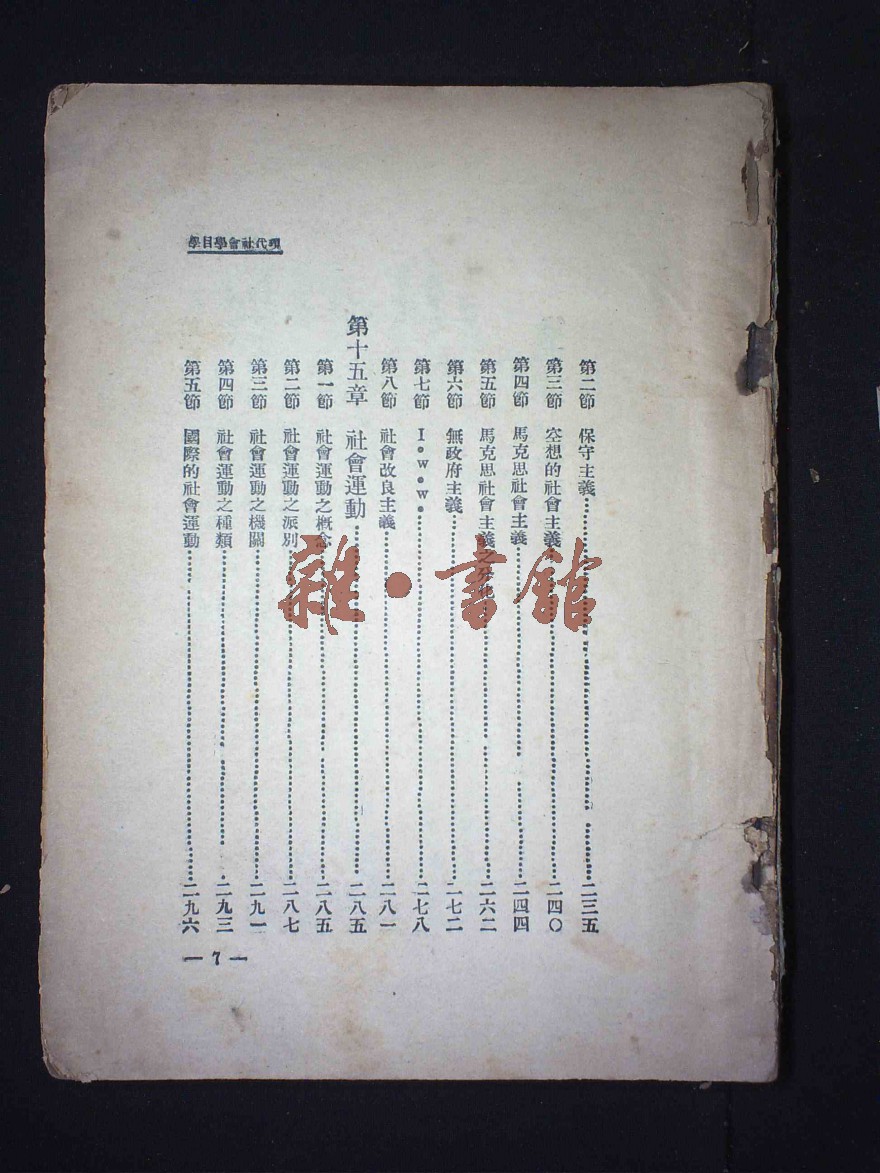 現代社會學目學
第二節　保守主義……二三五
第三節　空想的社會主義……二四〇
第四節　馬克思社會主義……二四四
第五節　馬克思社會主義之分化……二六二
第六節　無政府主義……二七二
第七節　I•W•W•……二七八
第八節　社會改良主義……二八一
第十五章　社會運動……二八五
第一節　社會運動之概念……二八五
第二節　社會運動之派別……二八七
第三節　社會運動之機關……二九一
第四節　社會運動之種類……二九三
第五節　國際的社會運動……二九六
— 7 —
雜•書館